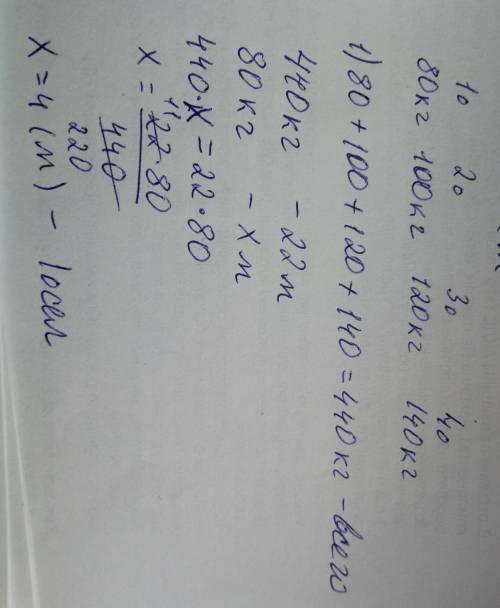 1о 2о 3о 4о
80кг 100кг 120кг 140кг
1) 80 + 100 + 120 + 140 = 440кг - всего
440кг - 22м
80кг - хм
440·х = 22·80
11
х = 22·80
440
220
х = 4 (м) - 1осел